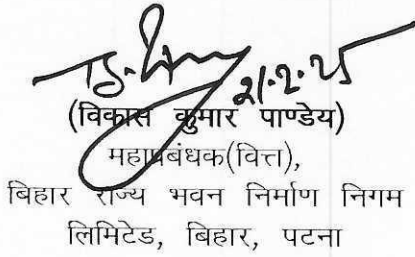 21.2.25
(विकास कुमार पाण्डेय)
महाप्रबंधक(वित्त),
बिहार राज्य भवन निर्माण निगम
लिमिटेड, बिहार, पटना